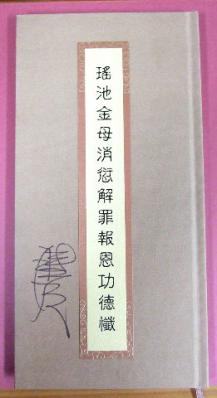 瑤池金母消愆解罪報恩功德懺